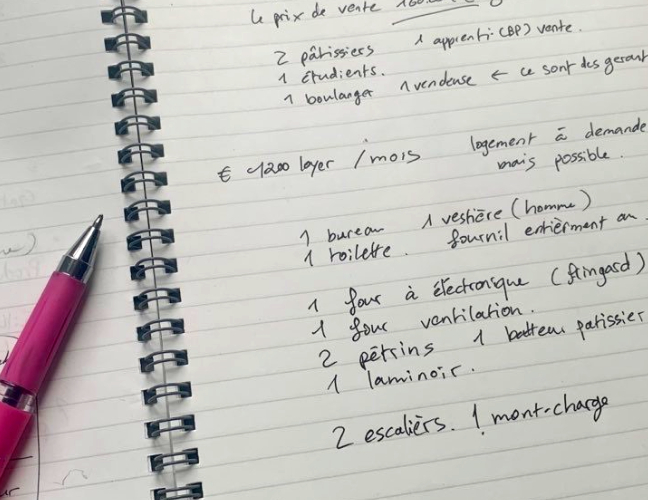 le prix de vente
2 pâtissiers 1 apprenti (BP) vente.
1 étudients.
1 boulanger 1 vendeuse ← ce sont des gerant
€ 1200 loyer / mois logement à demande
mais possible.
1 bureau 1 vestière (homme)
1 toilette. fournil entièrment au
1 four à électronique (fringard)
1 four ventilation.
2 pétrins 1 batteur patissier
1 laminoir.
2 escalièrs. 1 mont-charge